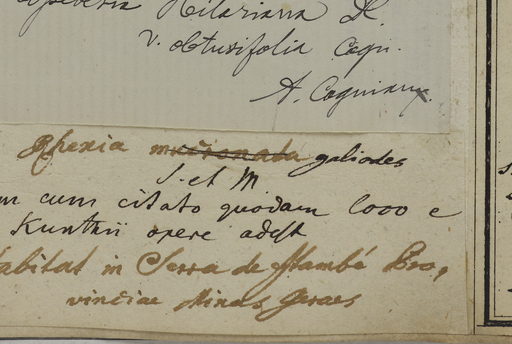 Hilariana DC.
v. obtusifolia Cogn.
A. Cogniaux.
Rhexia mucronata galiodes
S. et M
cum citato quodam loco e
Kunthii opere adest
habitat in Serra de Itambé Pro,
vinciae Minas Geraes